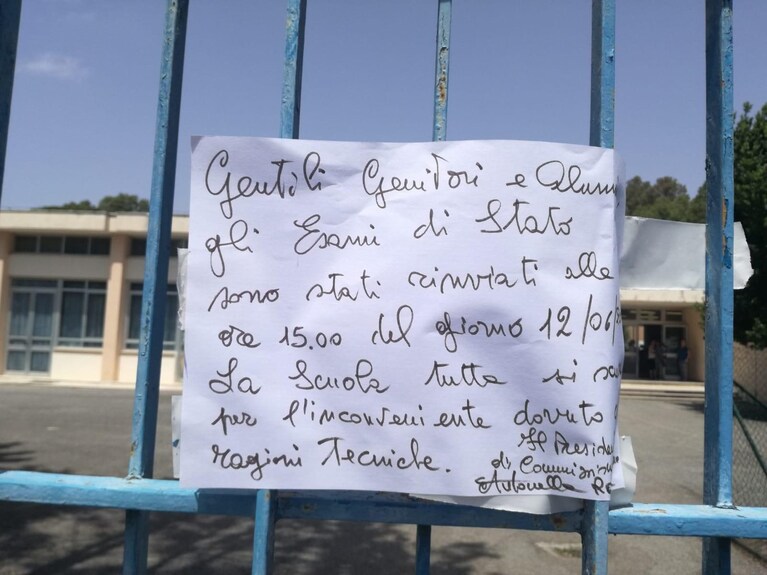 Gentili Genitori e Alun
gli Esami di Stato
sono stati rinviati alle
ore 15.00 del giorno 12/06/
La Scuola tutta si scu
per l'inconveniente dovuto
ragioni Tecniche.
Il Presiden
di Commission
Antonella R